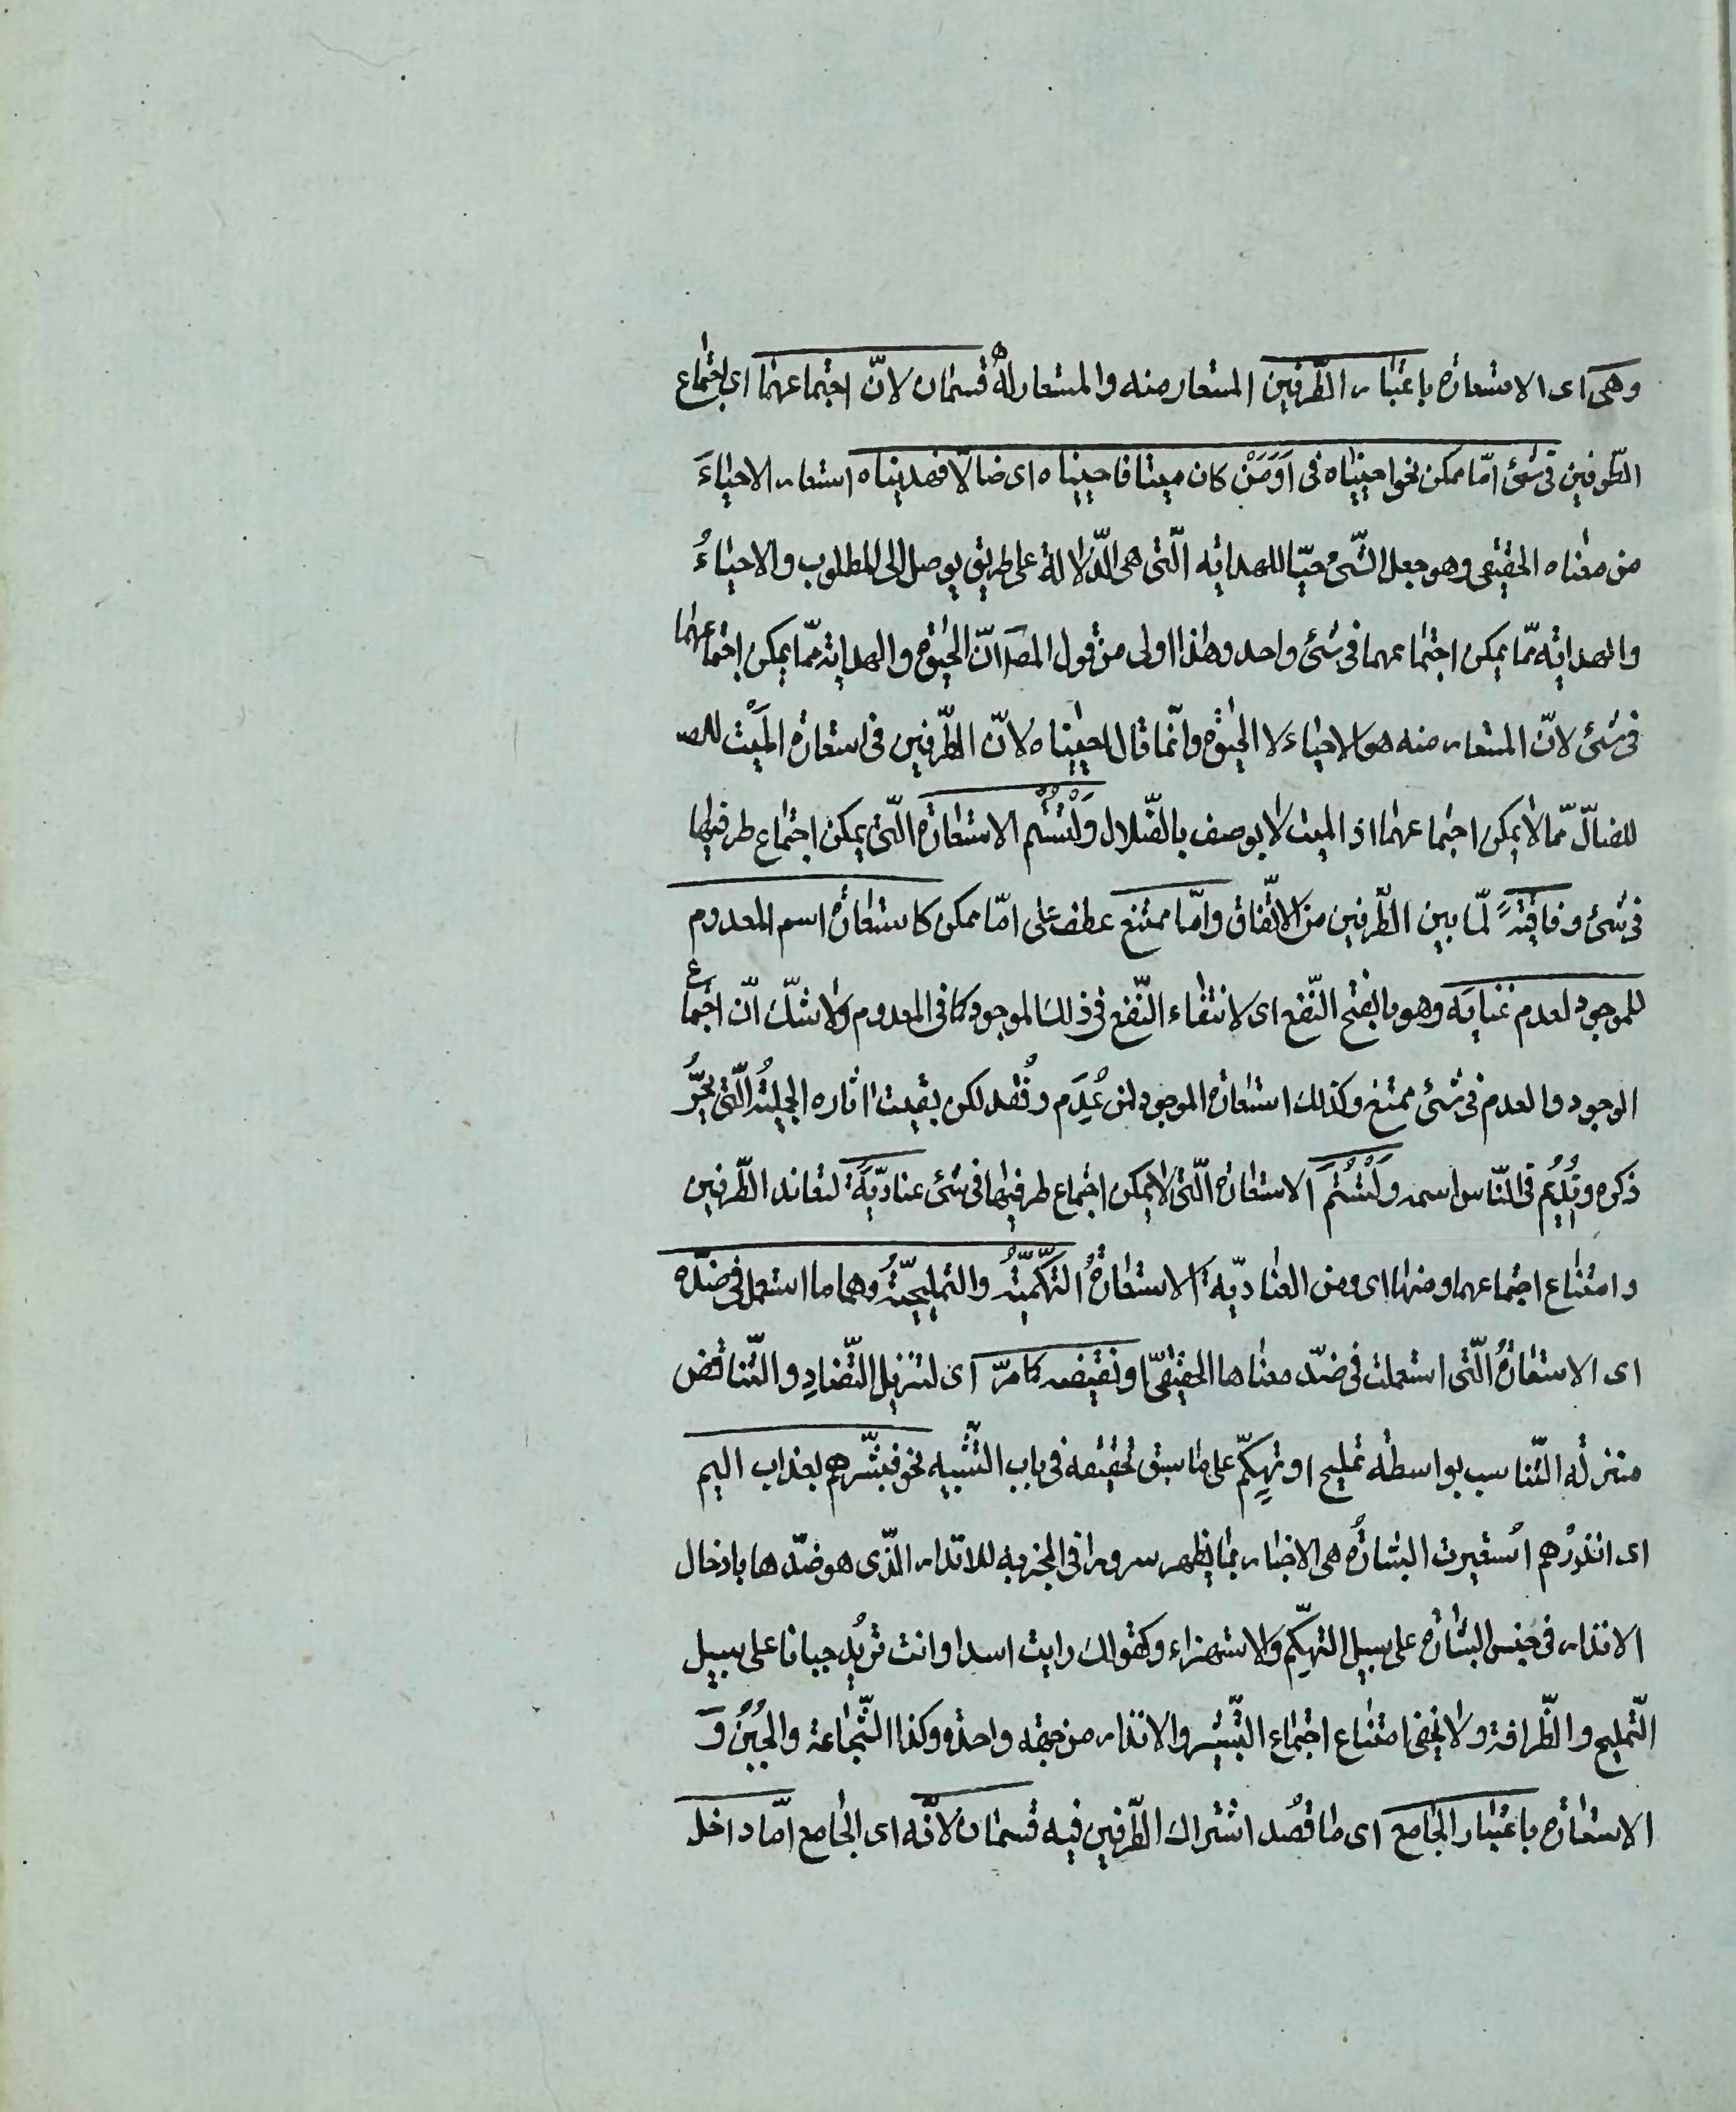 وهى اى الاستعارة باعتبار الطّرفين المستعار منه والمستعار له قسمان لانّ اجتماعهما اى اجتماع
الطّرفين فى شئ امّا ممكن نحو احييناه فى اَوَمَنْ كان ميتا فاحييناه اى ضالّا فهديناه استعار الاحياءَ
من معناه الحقيقى وهو جعل الشّئ حيّا للهداية الّتى هى الدّلالة على طريق يوصل الى المطلوب والاحياءُ
والهداية ممّا يمكن اجتماعهما فى شئ واحد وهذا اولى من قول المصَ انّ الحيٰوة والهداية ممّا يمكن اجتماعهما
فى شئ لانّ المستعار منه هو الاحياء لا الحيٰوة وانّما قال احييناه لانّ الطّرفين فى استعارة الميْت للضـ
للضالّ ممّا لا يمكن اجتماعهما اذ الميت لا يوصف بالضّلال وَلْتُسَمّ الاستعارة الّتى يمكن اجتماع طرفيها
فى شئ وفاقيّةً لما بين الطّرفين من الاتّفاق وامّا ممتنع عطف على امّا ممكن كاستعارة اسم المعدوم
للموجود لعدم غَنائه وهو بالفتح النّفع اى لانتفاء النّفع فى ذلك الموجود كما فى المعدوم ولا شكّ انّ اجتماع
الوجود والعدم فى شئ ممتنع وكذلك استعارة الموجود لمن عُدِم وفُقد لكن بقيت اثاره الجليلةُ الّتى تحيى
ذكره وتُدِيُم فى النّاس اسمه وَلْتُسَمّ الاستعارة الّتى لا يمكن اجتماع طرفيها فى شئ عناديّةً لتعاند الطّرفين
وامتناع اجتماعهما ومنها اى ومن العناديّة الاستعارةُ التهكّميّةُ والتمليحيّةُ وهما ما استعمل فى ضدّه
اى الاستعارةُ الّتى استعملت فى ضدّ معناها الحقيقىّ او نقيضه كما مرّ اى لتنزيل التّضادِ والتّناقض
منزلة التّناسب بواسطة تمليح او تهكّمٍ على ما سبق تحقيقه فى باب التّشبيه نحو فبشّرهم بعذاب اليم
اى انذرْهم اُستعيرت البشارةُ هى الاخبار بما يظهر سرورا فى المخبر به للانذار الّذى هو ضدّها بادخال
الانذار فى جنس البشارة على سبيل التهكّم والاستهزاء وكقولك رايت اسدا وانت تريُد جبانا على سبيل
التّمليح والظّرافة ولا يخفى امتناع اجتماع التّبشير والانذار من جهة واحدة وكذا الشّجاعة والجُبْنُ وَ
الاستعارة باعتبار الجامع اى ما قُصد اشتراك الطّرفين فيه قسمان لانّه اى الجامع امّا داخل